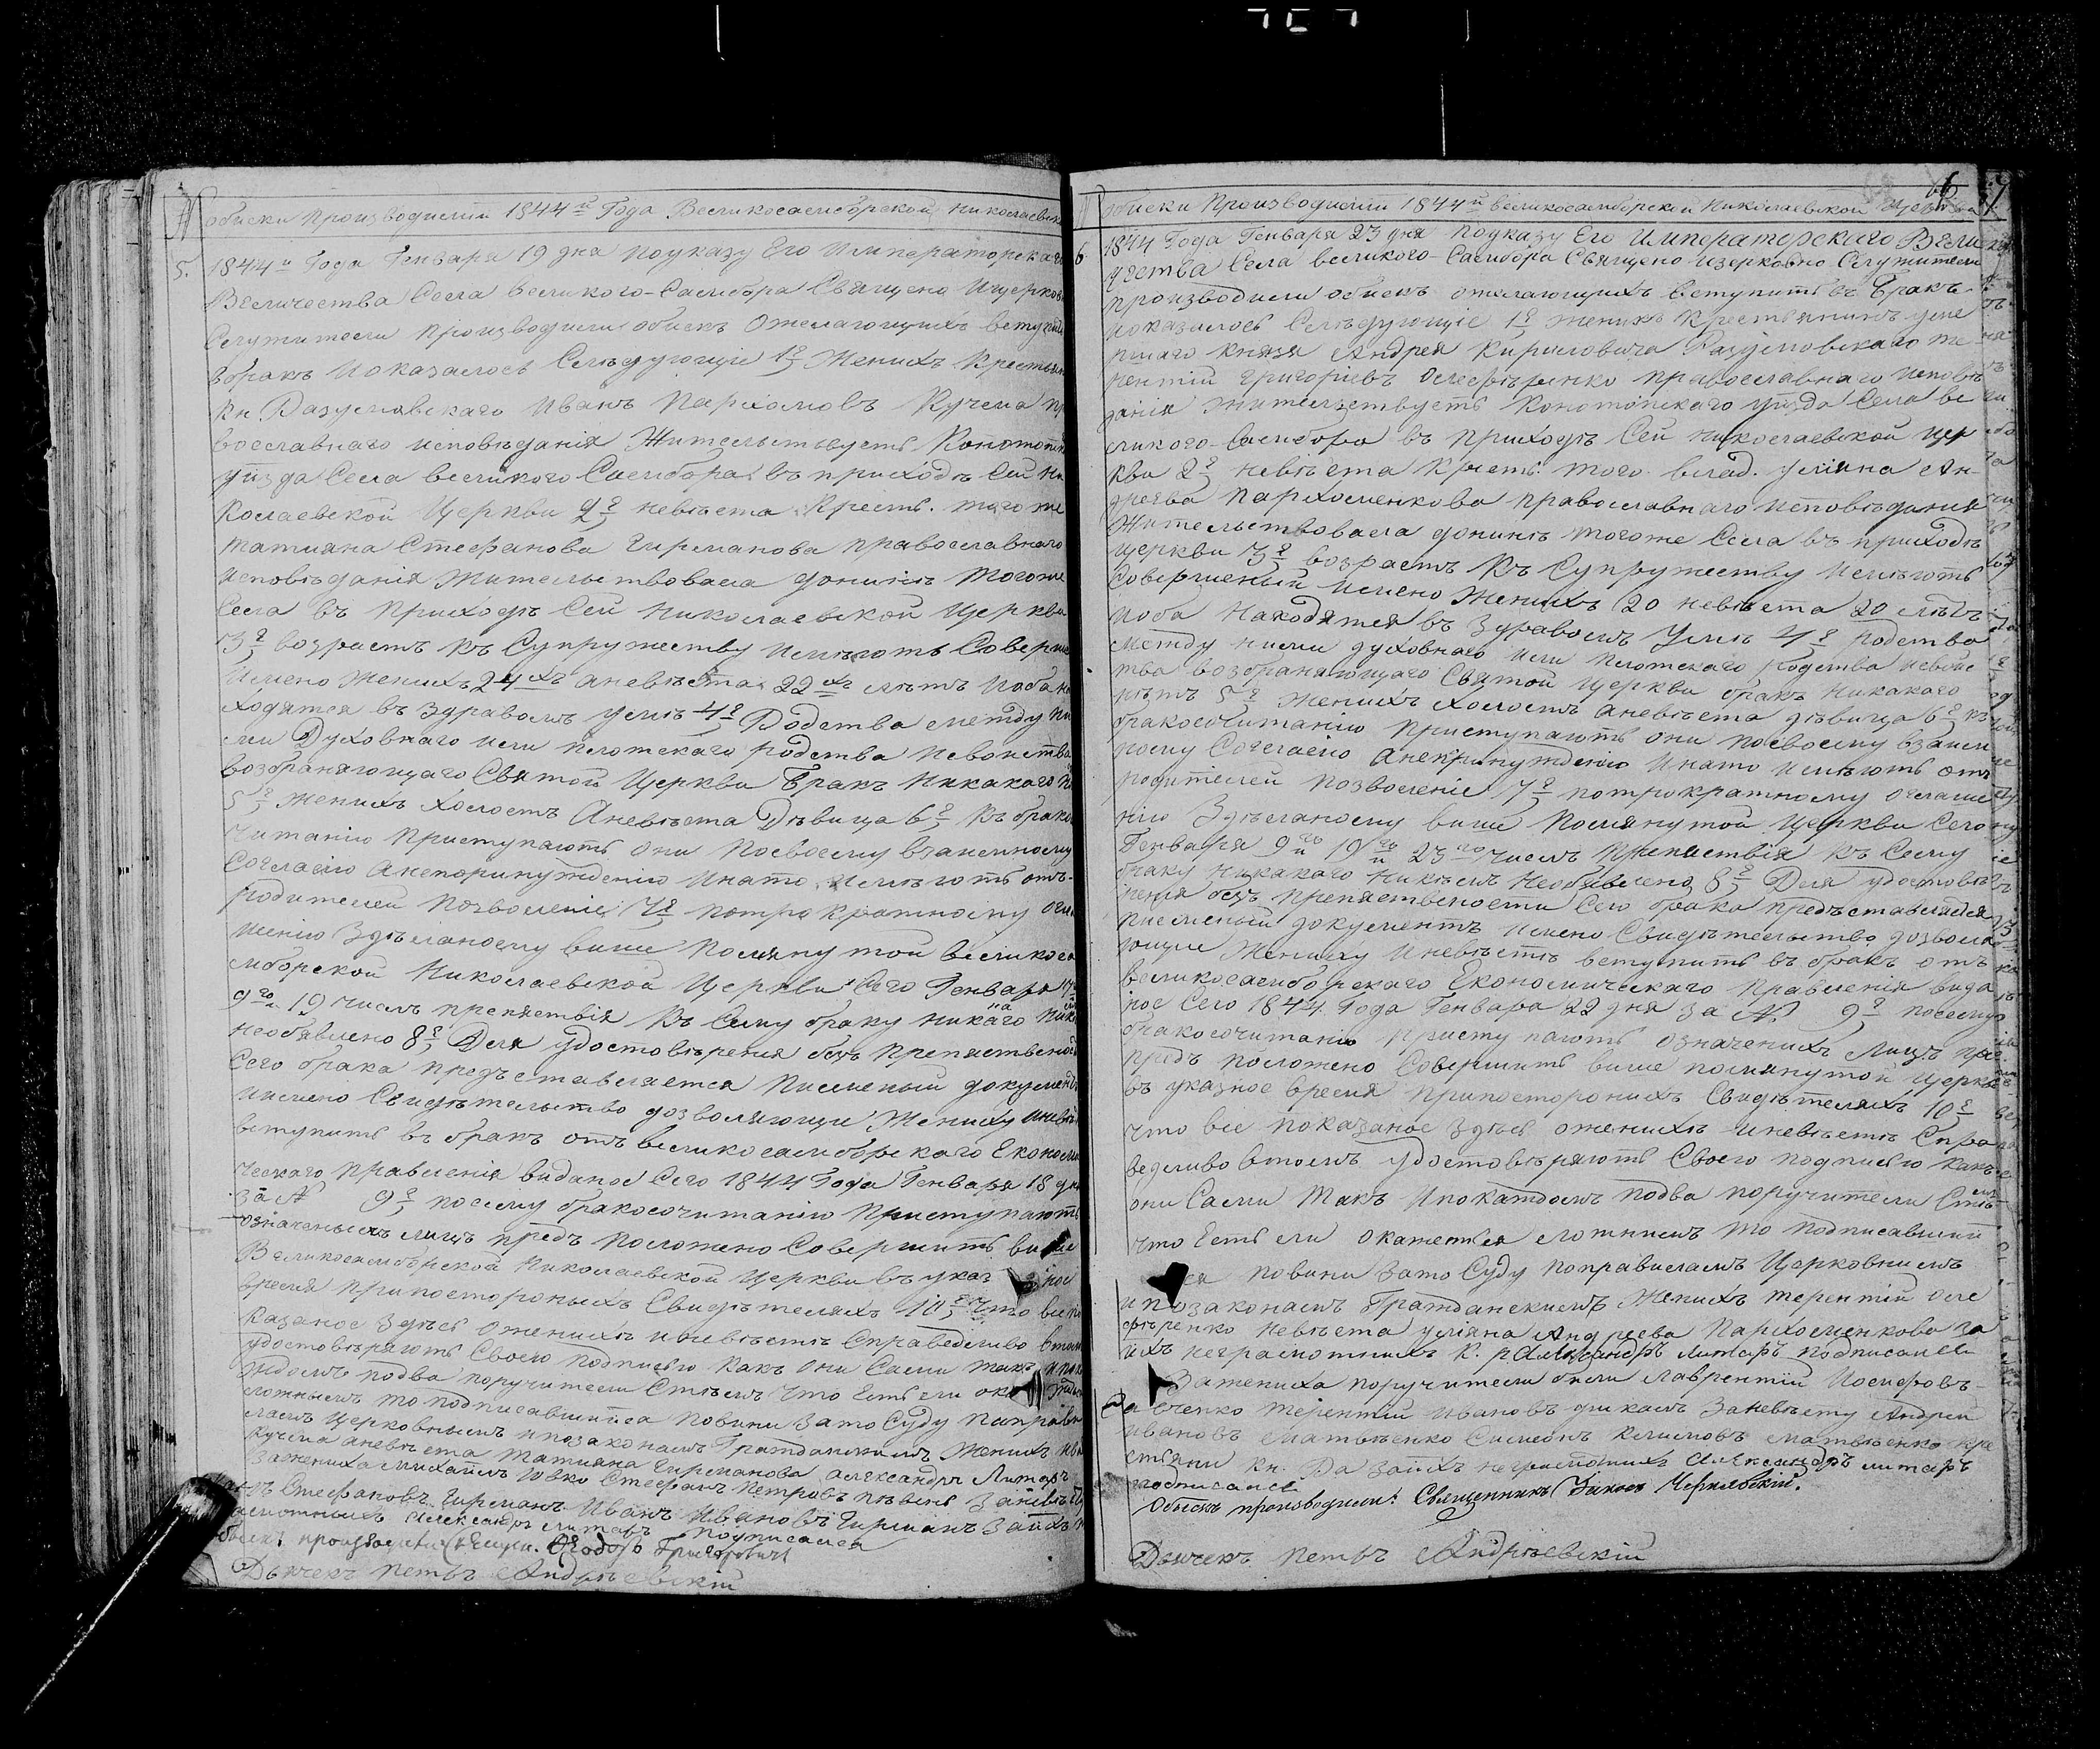 № обиски производимїи 1844й Года Великосамборской Николаевск
5. 1844й Года Генваря 19 дня поуказу Его Императорскаг
Величества Села великого-Самбора Священо Ицерков
Служители производили обискъ Ожелающихъ вступить
вбракъ Иоказалось Следующїе 1е Женихъ Крестьян
Кн. Разумовскаго Иванъ Пархомовъ Кучема пр
вославнаго исповѣданїя Жительствуетъ Конотопск
уѣзда Села великого Самбора въ приходѣ Сей Ни
колаевской Церкви 2е невѣста Крестъ. того же
татияна Стефанова Гирманова православнаго
исповѣданїя Жительствовала донинѣ тогоже
Села въ Приходѣ Сей Николаевской Церкви
3е возрастъ къ Супружеству имѣютъ Соверше
Имено Женихъ 24хъ аневѣста 22хъ лѣтъ Иоба на
ходятся въ здравомъ умѣ 4е Родства между ни
ми Духовнаго или плотскаго родства исвойства
возбраняющаго Святой Церкви Бракъ Никакого н
5е женихъ холостъ Аневѣста Дѣвица 6е Къ брако
читанїю Приступаютъ Они Посвоему взаимному
Согласїю Анепоринужденїю Инато имѣютъ отъ
родителей позволенїе 7е потрократному огла
шенїю Здѣланому више Помянутой великоса
мборской Николаевской Церкви Сего Генваря
9го и 19 числъ препятствїя къ Сему браку никакаго Ник
необявлено 8е Для удостовѣренїя безъ препятственос
Сего брака предъставляется писменый документ
имено Свидѣтельство дозволяющи Жениху иневѣ
вступить въ бракъ отъ великосамборскаго Економи
ческаго правленїя виданое Сего 1844 Года Генваря 18 дн
за № 9е посему бракосочитанїю Приступаютъ
означеныхъ лицъ предъ положено Совершить више
Великосамборской Николаевской Церкви въ указ ное
время припосторонныхъ Свидѣтеляхъ 10е что все по
казаное здѣсь ожених иневѣстѣ Справедливо втом
удостовѣряютъ Своею подписью какъ Они Сами такъ ипока
ждомъ подва поручители Стѣмъ что Есть ели ока жется
ложнымъ то подписавшиися повини зато Суду поправи
ламъ Церковнымъ ипозаконамъ Гражданскимъ Женихъ Ива
Кучема аневѣста Татияна Гирманова Александръ Литаръ
зажениха Михаилъ Ювко Стефанъ Петровъ Зазневѣ
Стефановъ Гирманъ Иванъ Ивановъ Гирманъ Заихъ
Александръ Литаръ подписался
обыскъ производили Священ. Ѳеодоръ Григоровичъ
Дьячекъ Петръ Андрѣевскїй
№ обиски производимїи 1844й великосамборской Николаевской Церкви
6 1844 Года Генваря 23 дня Поуказу Его Императорскаго Вели
чества Села великого-Самбора Священо ицерковно Служители
производили обискъ ожелающихъ вступить въ Бракъ
иоказалось Слѣдующїе 1е Женихъ Крестьянинъ умер
шаго Князя Андрея Кириловича Разумовскаго те
рентїй Григорїевъ Олефѣренко православнаго исповѣ
данїя жительствуетъ Конотопскаго уѣзда Села ве
ликого-Самбора въ Приходѣ Сей Николаевской Цер
кви 2е невѣста Крестъ. того влад. Улїяна Ан
дреева Пархоменкова православнаго исповѣданїя
Жительствовала донинѣ тогоже Села въ приходѣ
Церкви 3е возрастъ къ Супружеству имѣютъ
Совершеный имено Женихъ 20 невѣста 20 лѣтъ
иоба находятся въ здравомъ умѣ 4е родства
между ними духовнаго или плотскаго родства исвойс
тва возбраняющаго Святой Церкви бракъ Никакаго
нѣтъ 5е Женихъ холостъ аневѣста дѣвица 6е къ
бракосочитанїю приступаютъ они посвоему взаим
ному Согласїю анепринужденїю инато имѣютъ отъ
родителей позволенїе 7е потрократному оглаше
нїю Здѣланому више помянутой Церкви Сего
Генваря 9го и 19го и 23го числъ препятствїя къ Сему
браку никакаго никѣмъ необявлено 8е Для удостовѣ
ренїя безъ препятствености Сего брака предъставляется
писменый документъ имено Свидѣтельство дозволя
ющие Жениху иневѣстѣ вступить въ бракъ отъ
великосамборскаго Економическаго правленїя вида
ное Сего 1844 Года Генваря 22 дня за № 9е посему
бракосочитанїю приступаютъ означенихъ лицъ
предъ положено Совершить више помянутой Церкви
въ указное время припосторонихъ Свидѣтеляхъ 10е
что все показаное здѣсь оженихѣ иневѣстѣ Спра
ведливо втомъ удостовѣряютъ Своею подписью какъ
они Сами такъ ипокаждомъ подва поручители Стѣмъ
что Есть ели окажется ложнимъ то подписавшии
ся повини зато Суду поправиламъ Церковнимъ
ипозаконамъ Гражданскимъ Женихъ терентїй Оле
фѣренко невѣста улїяна Андреева Пархоменкова за
ихъ неграмотнихъ К. р. Александръ Литаръ подписался
Зажениха поручители били Лаврентїй Иосифовъ
Савченко терентїй Ивановъ Заневѣсту Андрей
Ивановъ Матвѣенко Симеонъ Климовъ Матвѣенко кре
стьяни кн. Ра Заихъ неграмотнихъ Александръ Литаръ
подписался
Обыскъ производили: Священникъ Іаковъ Чернявскїй.
Дьячекъ Петръ Андрѣевскїй